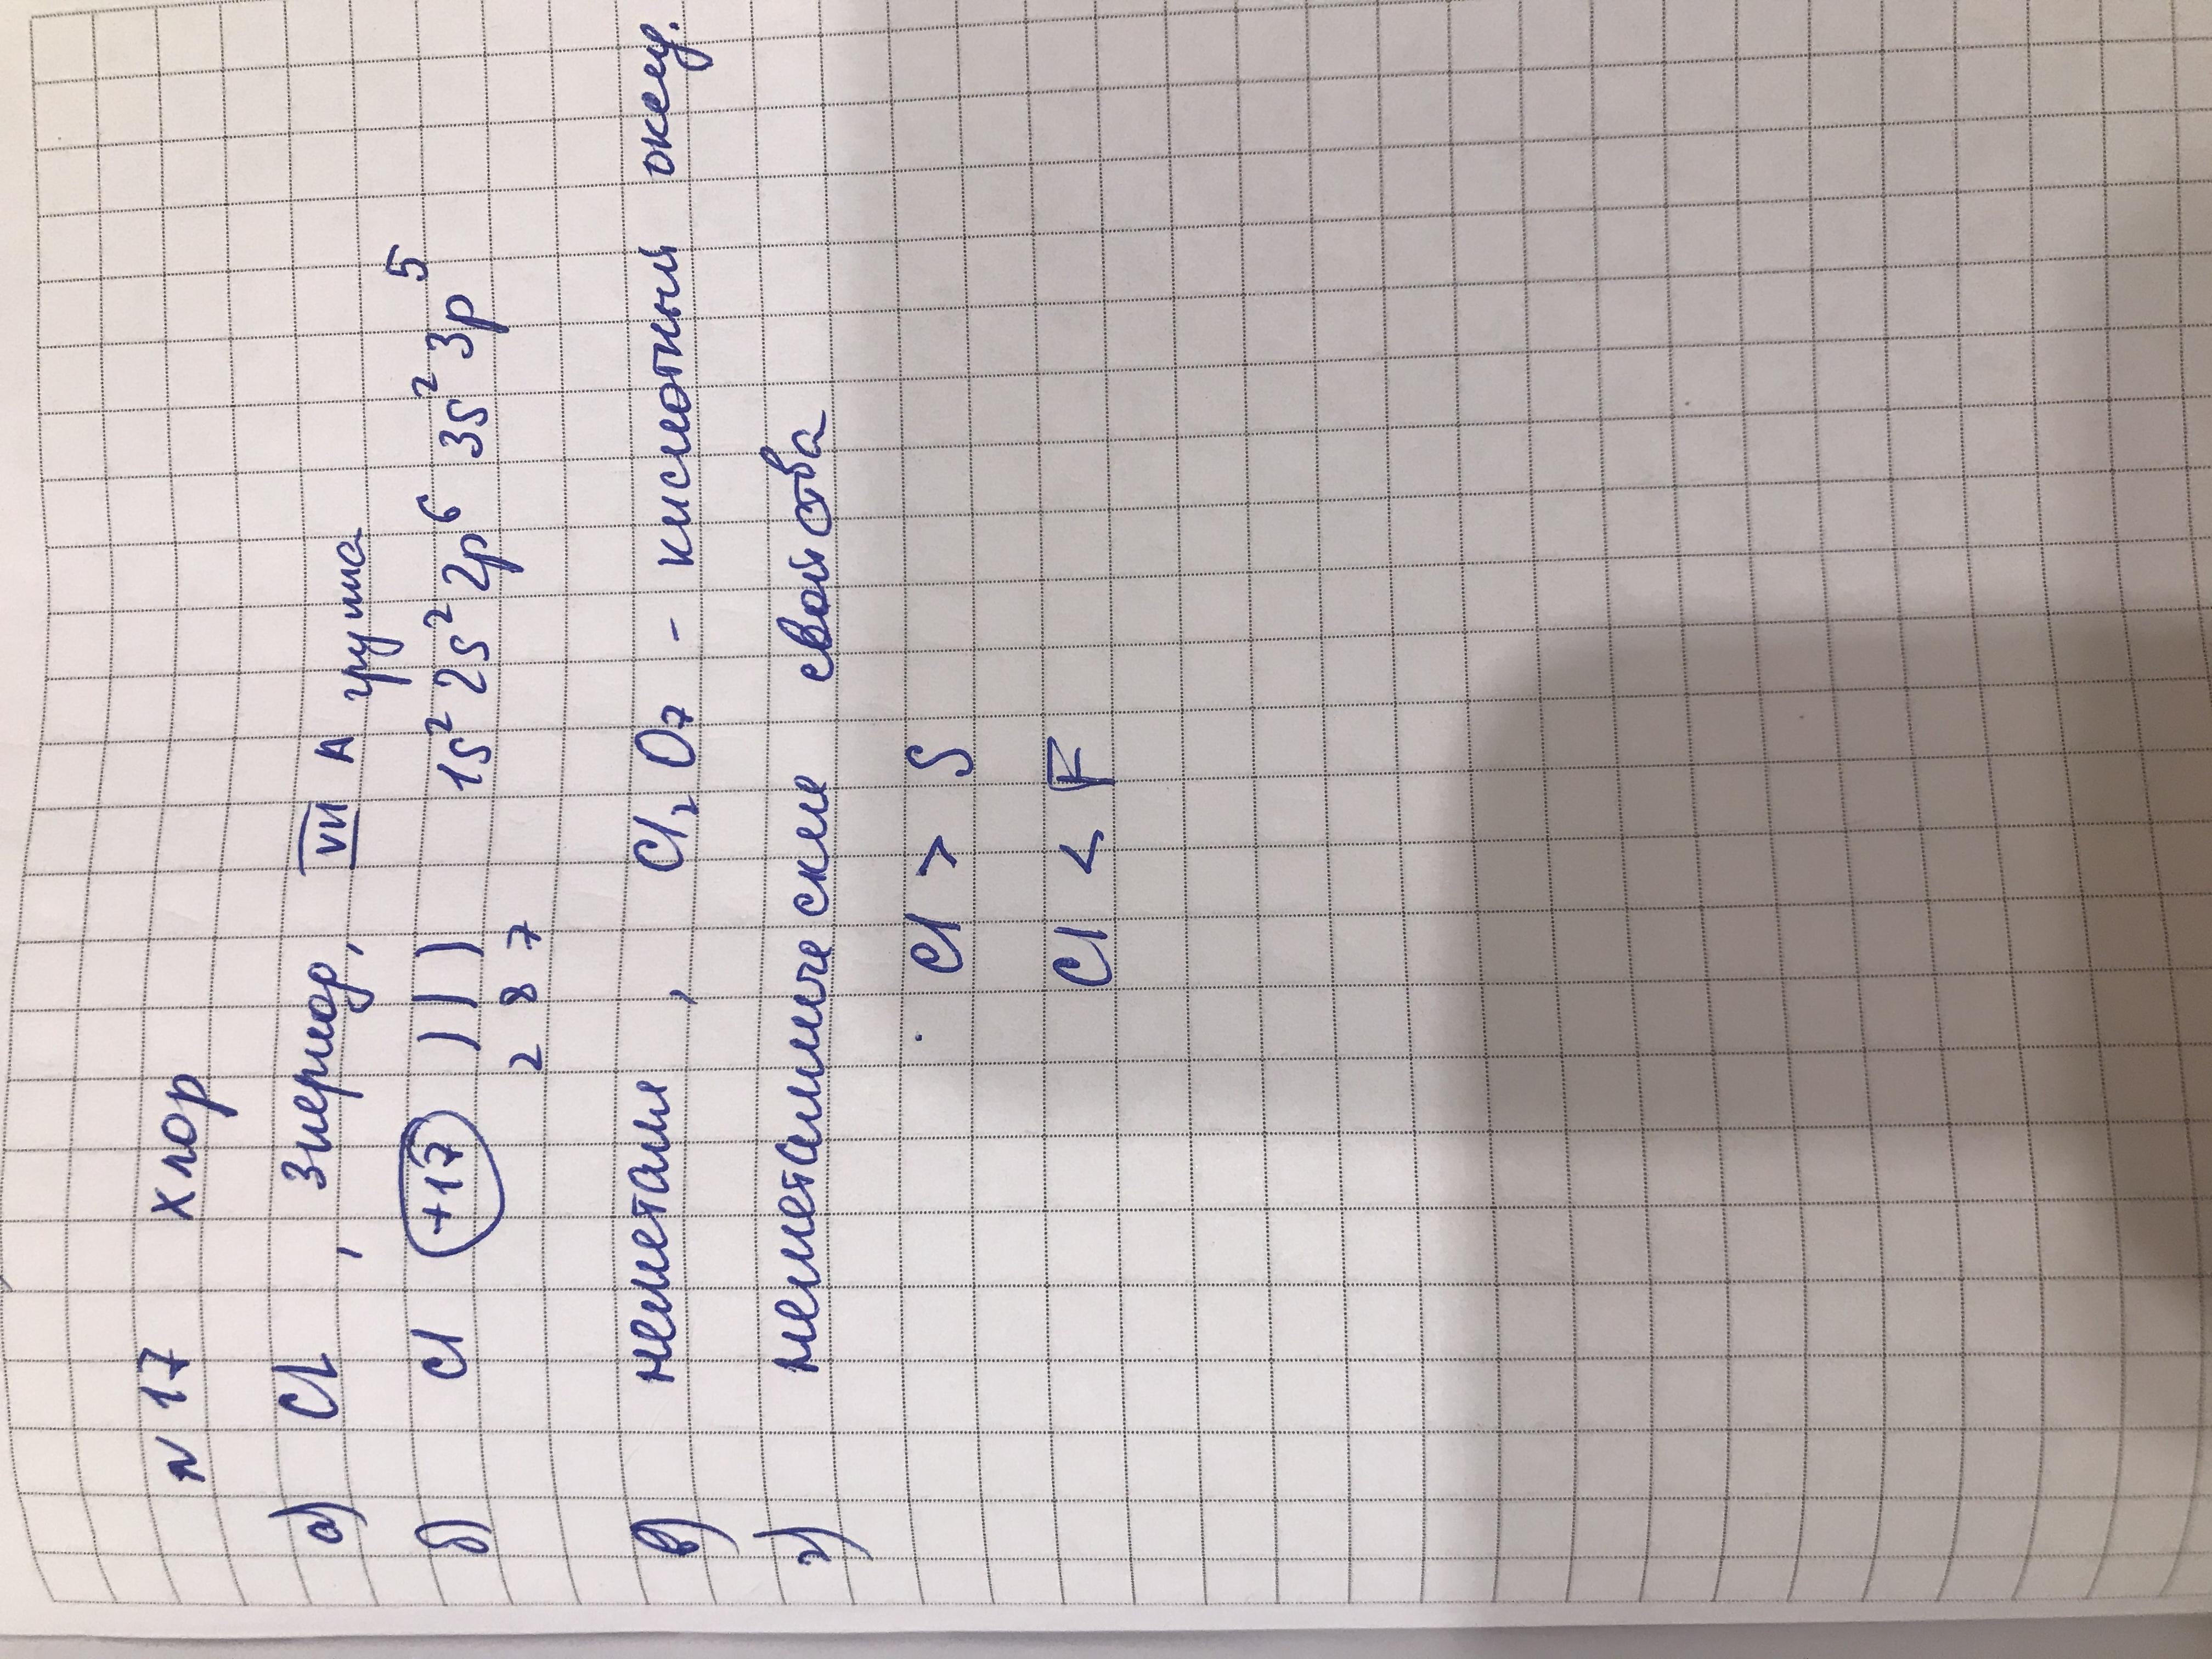 N 17 Хлор
а) Cl, 3период, VII А група
б) Cl +17 ) ) ) 1s² 2s² 2p⁶ 3s² 3p⁵
2 8 7
в) неметалл, Cl₂O₇ - кислотный оксид.
г) неметаллические свойства
Cl > S
Cl < F